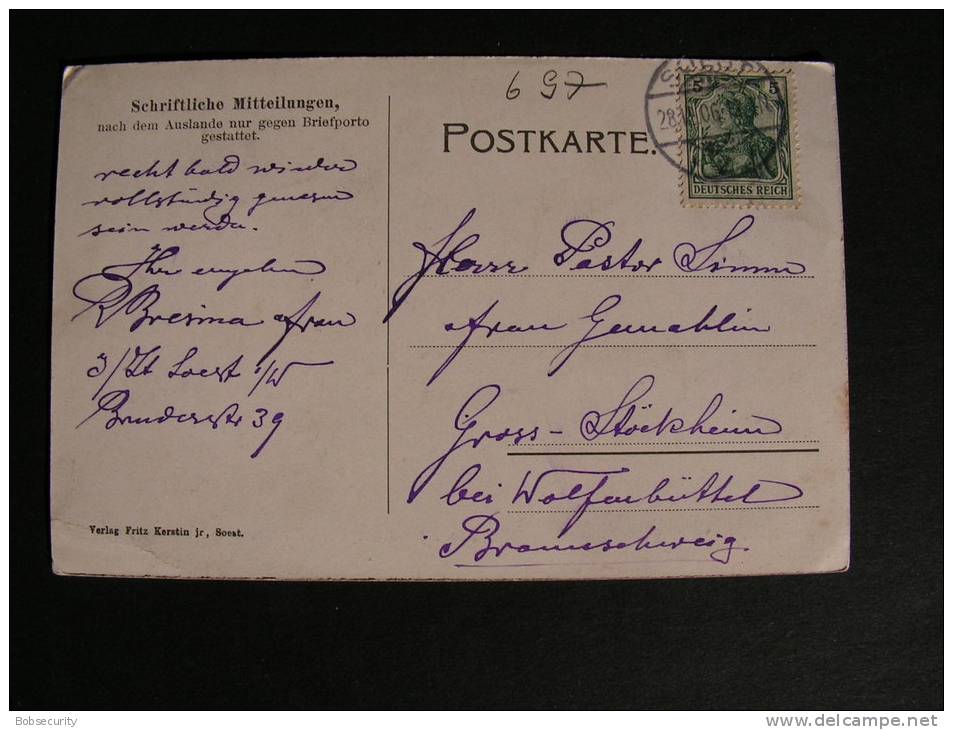 6 97
Schriftliche Mitteilungen,
nach dem Auslande nur gegen Briefporto
gestattet.
POSTKARTE.
5 5
DEUTSCHES REICH
recht bald wieder
vollständig genesen
sein werden.
Ihr ergeben
R Bresina
z/Zt Soest i/W
Bruderstr 39
Verlag Fritz Kerstin jr, Soest.
Herrn Pastor
Gemahlin
Gross-Stöckheim
bei Wolfenbüttel
Braunschweig.
Bobsecurity
www.delcampe.net